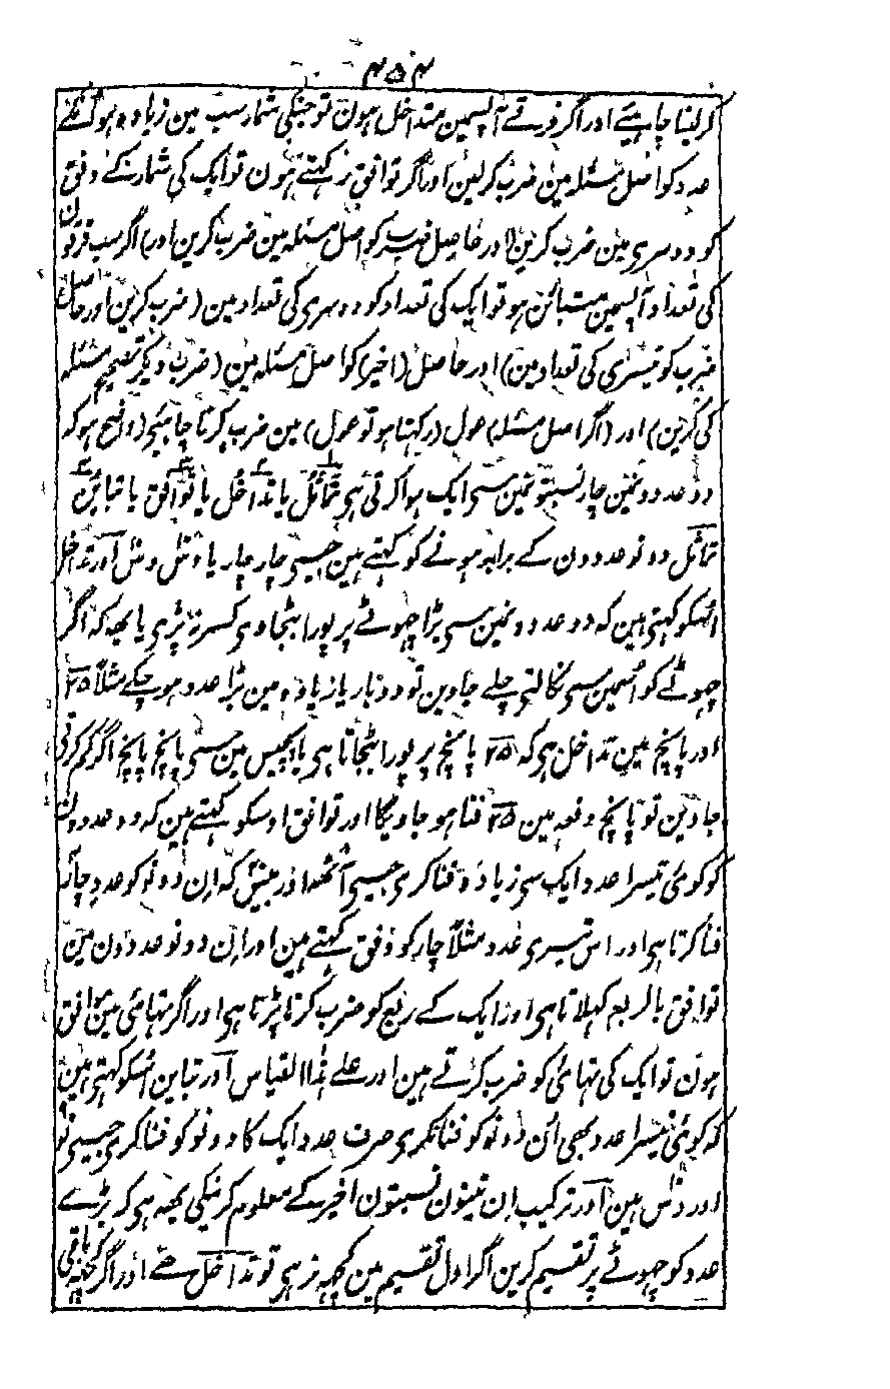 ۴۵۴
کرلینا چاہیئے اور اگر فرقے آپسمین متداخل ہون تو جنکی شمار سب مین زیادہ ہو اُنکے
عدد کو اصل مسئلہ مین ضرب کرلین اور اگر توافق رکہتے ہون تو ایک کی شمار کے وفق
کو دوسری مین ضرب کرین (اور حاصل ضرب کو اصل مسئلہ مین ضرب کرین اور) اگر سب فرقون
کی تعداد آپسمین متبائن ہو تو ایک کی تعداد کو دوسری کی تعداد مین (ضرب کرین اور حاصل
ضرب کو تیسری کی تعداد مین) اور حاصل (اخیر) کو اصل مسئلہ مین (ضرب دیکر تصحیح مسئلہ
کی کرین) اور (اگر اصل مسئلہ) عول (رکہتا ہو تو عول) مین ضرب کرنا چاہیئے (واضح ہو کہ
دو عددونمین چار نسبتونمین سے ایک ہوا کرتی ہی تماثل یا تداخل یا توافق یا تباین
تماثل دونو عددون کے برابر ہونے کو کہتے ہین جیسی چار چار یا دس دس اور تداخل
اُسکو کہتی ہین کہ دو عددونمین سی بڑا چہوٹے پر پورا بٹجاوی کسر نہ پڑی یا یہہ کہ اگر
چہوٹے کو اُسمین سی نکالتی چلے جاوین تو دو بار یا زیادہ مین بڑا عدد ہو چکے مثلاً ۲۵
اور پانچ مین تداخل ہی کہ ۲۵ پانچ پر پورا بٹجاتا ہی یا پچیس مین سی پانچ پانچ اگر کم کرتی
جاوین تو پانچ دفعہ مین ۲۵ فنا ہو جاویگا اور توافق اوسکو کہتے ہین کہ دو عددون
کو کوئی تیسرا عدد ایک سی زیادہ فنا کری جیسی آٹھ اور بیس کہ ان دونو کو عدد چار
فنا کرتا ہی اور اس تیسری عدد مثلاً چار کو وفق کہتے ہین اور ان دونو عددون مین
توافق بالربع کہلاتا ہی اور ایک کے ربع کو ضرب کرنا پڑتا ہی اور اگر تہائی مین موافق
ہون تو ایک کی تہائی کو ضرب کرتے ہین اور علے ہذا القیاس اور تباین اُسکو کہتی ہین
کہ کوئی تیسرا عدد بھی اُن دونو کو فنا نکری صرف عدد ایک کا دونو کو فنا کری جیسی نو
اور دس ہین اور ترکیب ان تینون نسبتون اخیر کے معلوم کرنیکی یہہ ہی کہ بڑے
عدد کو چہوٹے پر تقسیم کرین اگر اول تقسیم مین کچہہ نرہی تو تداخل ہے اور اگر کچہہ باقی